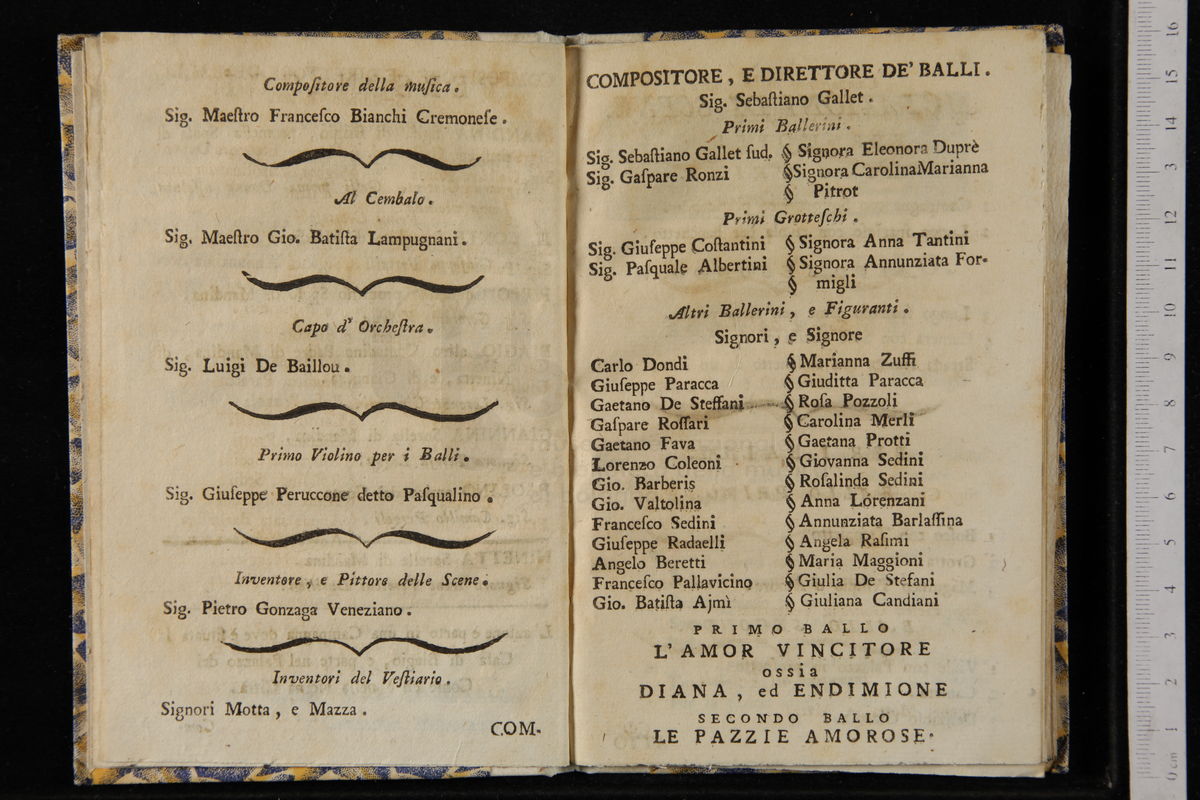 Compoſitore della muſica.
Sig. Maeſtro Franceſco Bianchi Cremoneſe.
Al Cembalo.
Sig. Maeſtro Gio. Batiſta Lampugnani.
Capo d' Orcheſtra.
Sig. Luigi De Baillou.
Primo Violino per i Balli.
Sig. Giuſeppe Peruccone detto Paſqualino.
Inventore, e Pittore delle Scene.
Sig. Pietro Gonzaga Veneziano.
Inventori del Veſtiario.
Signori Motta, e Mazza.
COM-
COMPOSITORE, E DIRETTORE DE' BALLI.
Sig. Sebaſtiano Gallet.
Primi Ballerini.
Sig. Sebaſtiano Gallet ſud. § Signora Eleonora Duprè
Sig. Gaſpare Ronzi § Signora Carolina Marianna
§ Pitrot
Primi Grotteſchi.
Sig. Giuſeppe Coſtantini § Signora Anna Tantini
Sig. Paſquale Albertini § Signora Annunziata For-
§ migli
Altri Ballerini, e Figuranti.
Signori, e Signore
Carlo Dondi § Marianna Zuffi
Giuſeppe Paracca § Giuditta Paracca
Gaetano De Steffani § Roſa Pozzoli
Gaſpare Roſſari § Carolina Merli
Gaetano Fava § Gaetana Protti
Lorenzo Coleoni § Giovanna Sedini
Gio. Barberis § Roſalinda Sedini
Gio. Valtolina § Anna Lorenzani
Franceſco Sedini § Annunziata Barlaſſina
Giuſeppe Radaelli § Angela Raſimi
Angelo Beretti § Maria Maggioni
Franceſco Pallavicino § Giulia De Stefani
Gio. Batiſta Ajmì § Giuliana Candiani
PRIMO BALLO
L'AMOR VINCITORE
ossia
DIANA, ed ENDIMIONE
SECONDO BALLO
LE PAZZIE AMOROSE.
16
15
14
13
12
11
10
9
8
7
6
5
4
3
2
1
0 cm